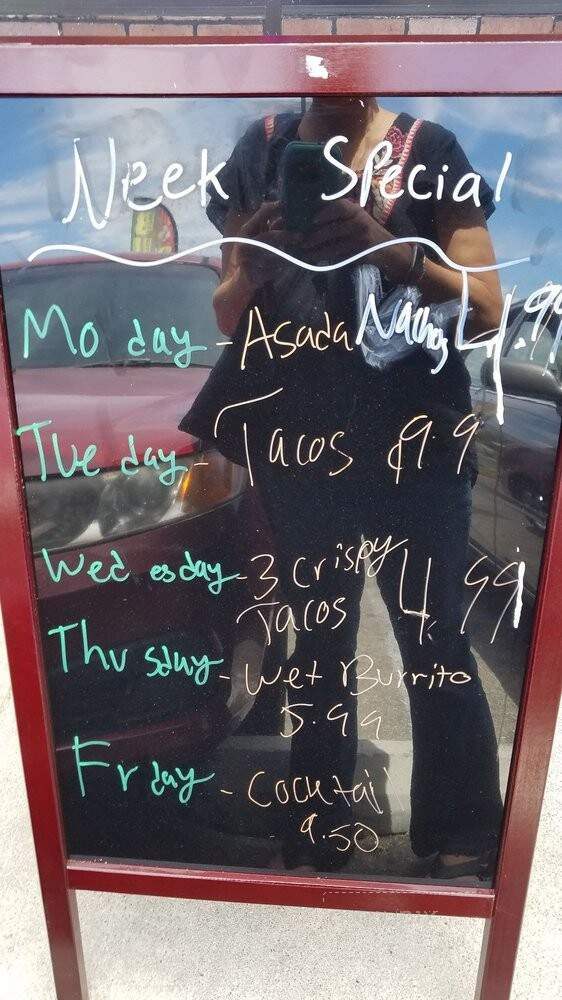 Week Special
Mo day - Asada Nachos 4.99
Tue day - Tacos $9.9
Wed esday - 3 Crispy
Tacos 4.99
Thu sday - Wet Burrito
5.99
Fr day - Cocktail
9.50